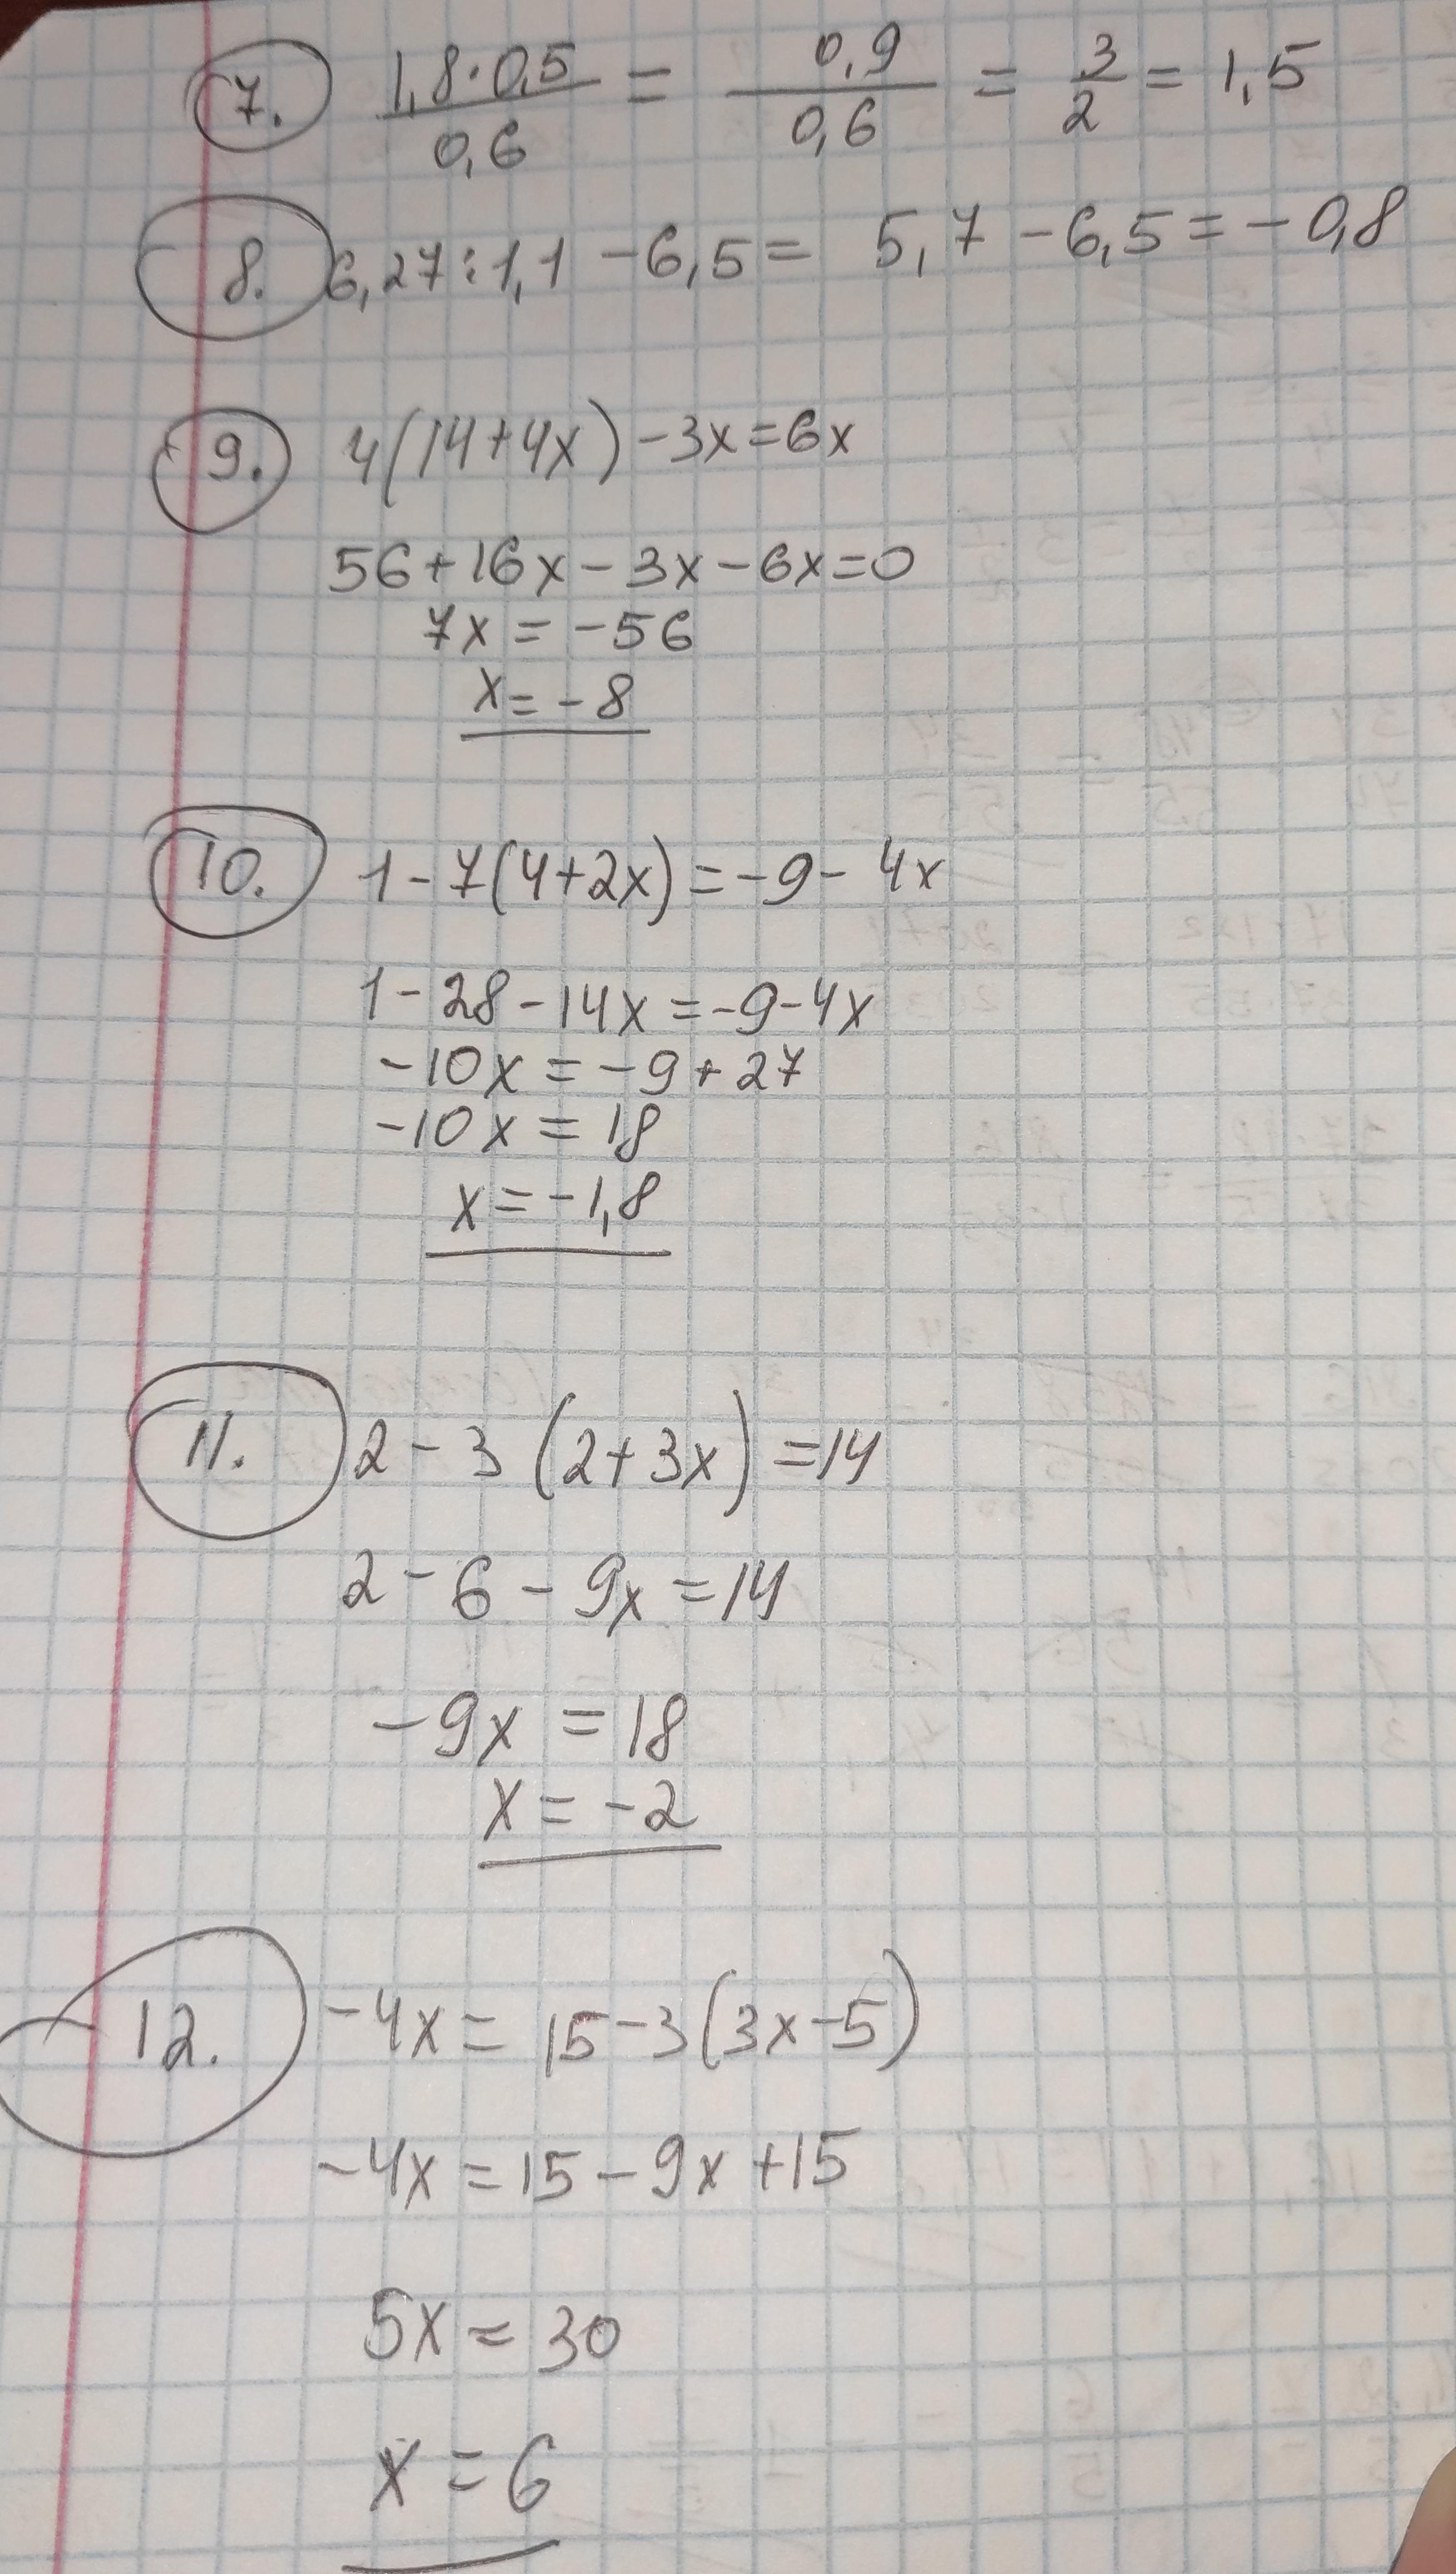 7. 1,8·0,5/0,6 = 0,9/0,6 = 3/2 = 1,5
8. 6,27:1,1 -6,5= 5,7-6,5=-0,8
9. 4(14+4x)-3x=6x
56+16x-3x-6x=0
7x=-56
x=-8
10. 1-7(4+2x)=-9-4x
1-28-14x=-9-4x
-10x=-9+27
-10x=18
x=-1,8
11. 2-3(2+3x)=14
2-6-9x=14
-9x=18
x=-2
12. -4x=15-3(3x-5)
-4x=15-9x+15
5x=30
x=6